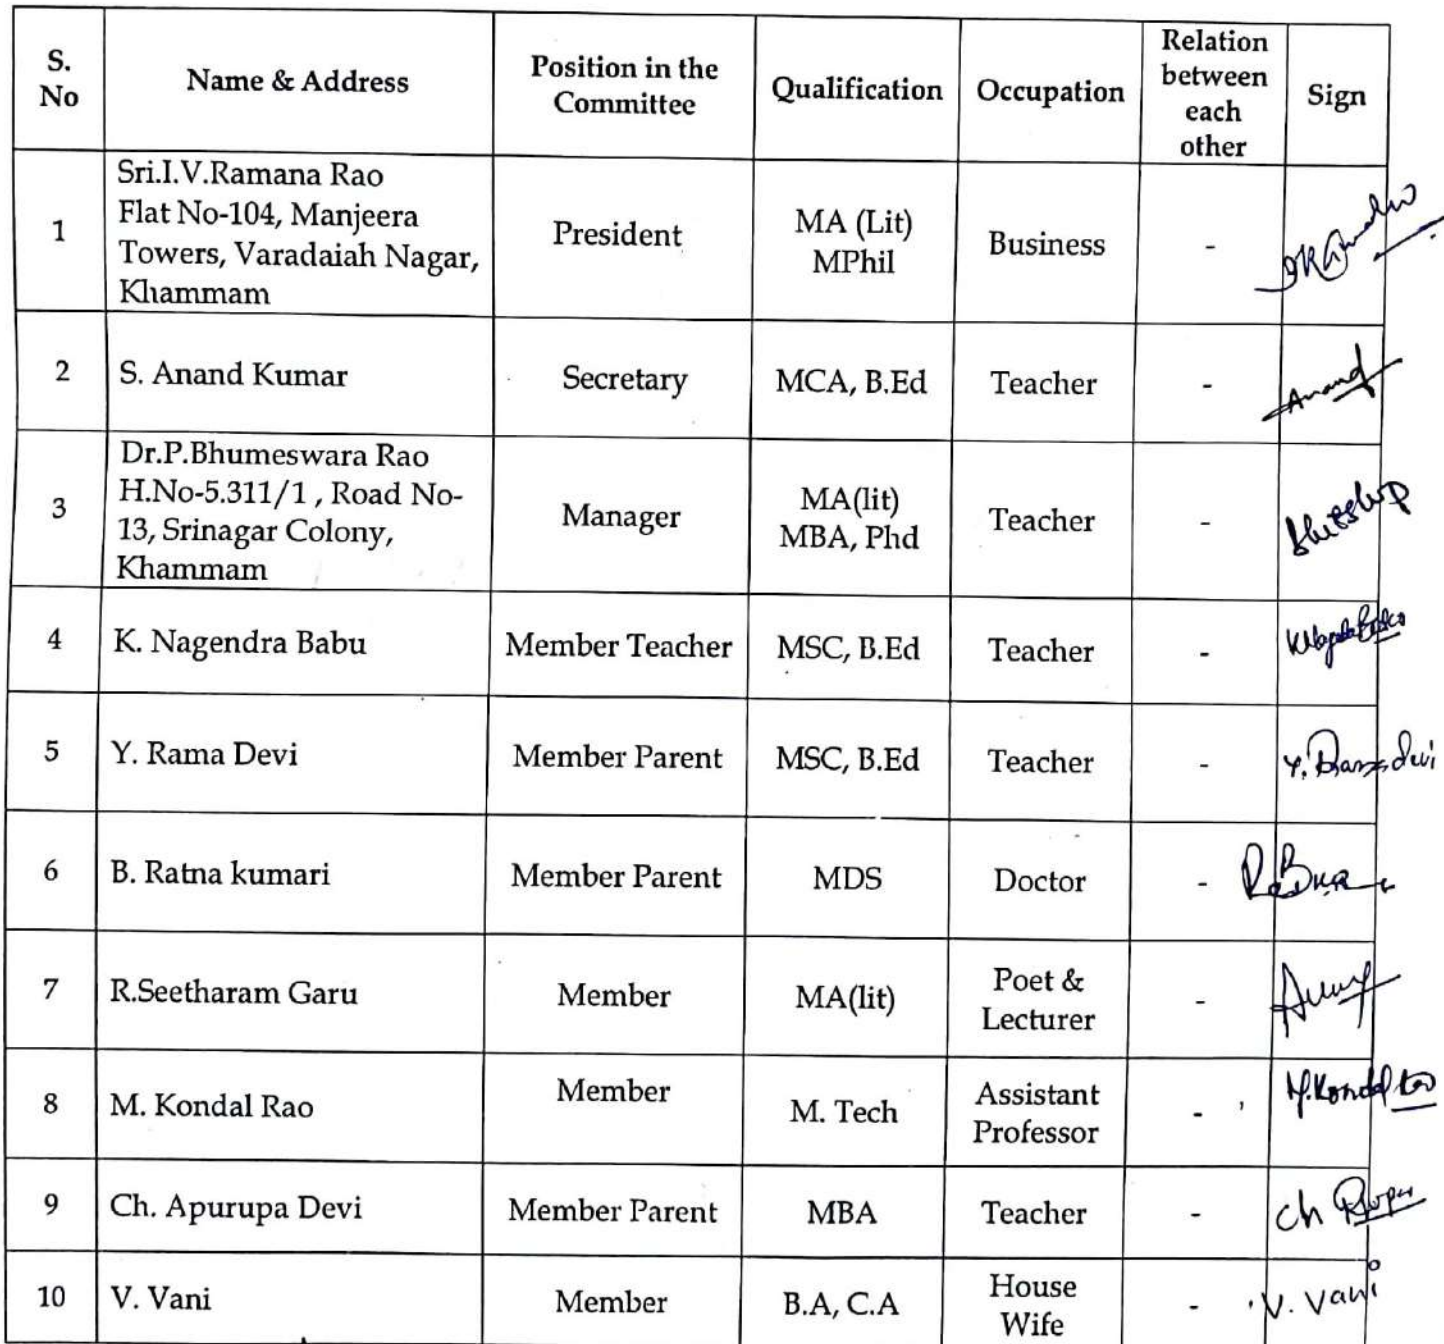 S. No | Name & Address | Position in the Committee | Qualification | Occupation | Relation between each other | Sign
1 | Sri.I.V.Ramana Rao Flat No-104, Manjeera Towers, Varadaiah Nagar, Khammam | President | MA (Lit) MPhil | Business | -
2 | S. Anand Kumar | Secretary | MCA, B.Ed | Teacher | - | Anand
3 | Dr.P.Bhumeswara Rao H.No-5.311/1 , Road No-13, Srinagar Colony, Khammam | Manager | MA(lit) MBA, Phd | Teacher | -
4 | K. Nagendra Babu | Member Teacher | MSC, B.Ed | Teacher | -
5 | Y. Rama Devi | Member Parent | MSC, B.Ed | Teacher | - | Y. Rama Devi
6 | B. Ratna kumari | Member Parent | MDS | Doctor | -
7 | R.Seetharam Garu | Member | MA(lit) | Poet & Lecturer | -
8 | M. Kondal Rao | Member | M. Tech | Assistant Professor | - | M.Kondal Rao
9 | Ch. Apurupa Devi | Member Parent | MBA | Teacher | - | Ch
10 | V. Vani | Member | B.A, C.A | House Wife | - | V. Vani